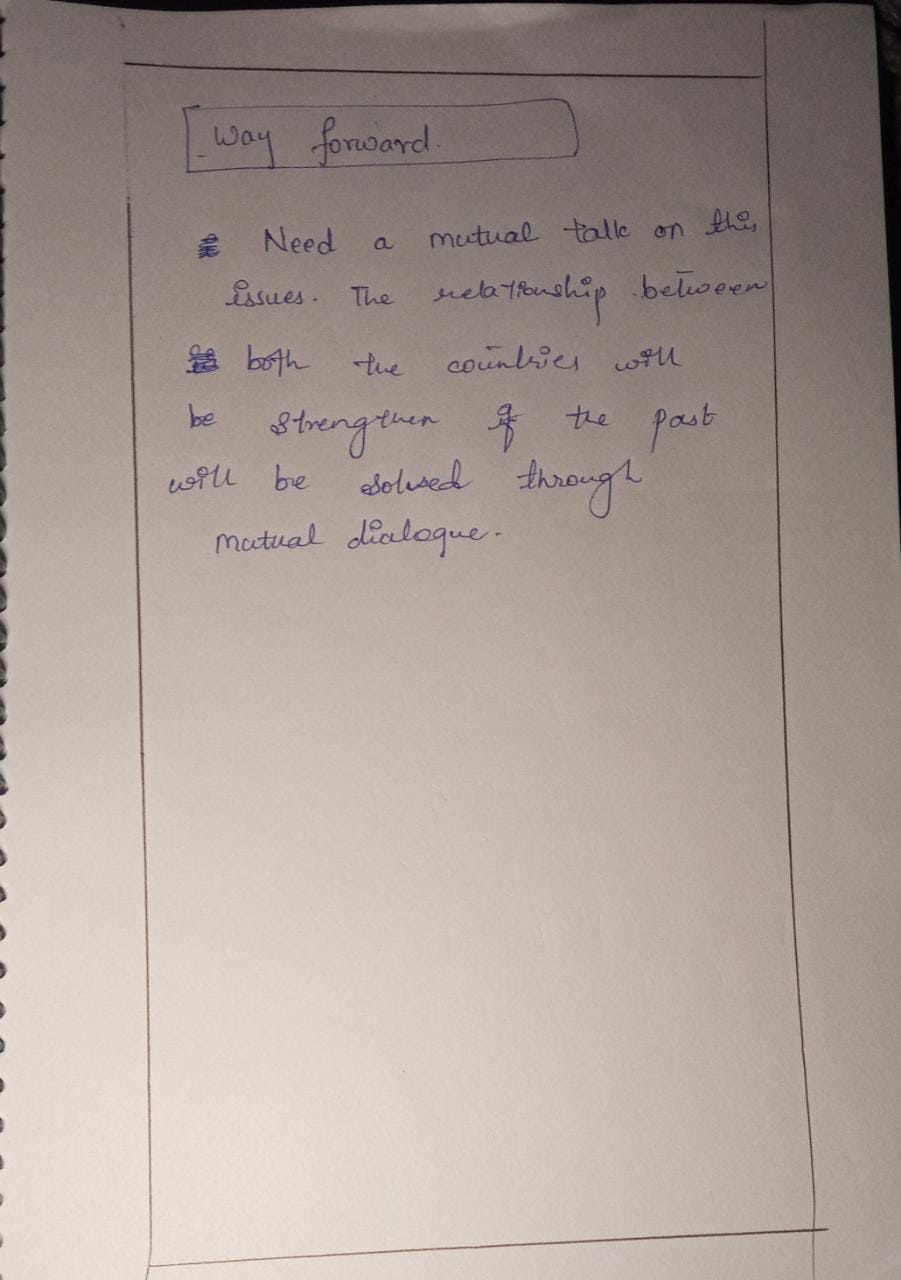 Way forward.
Need a mutual talk on this
issues. The relationship between
both the countries will
be strengthen if the past
will be solved through
mutual dialogue.